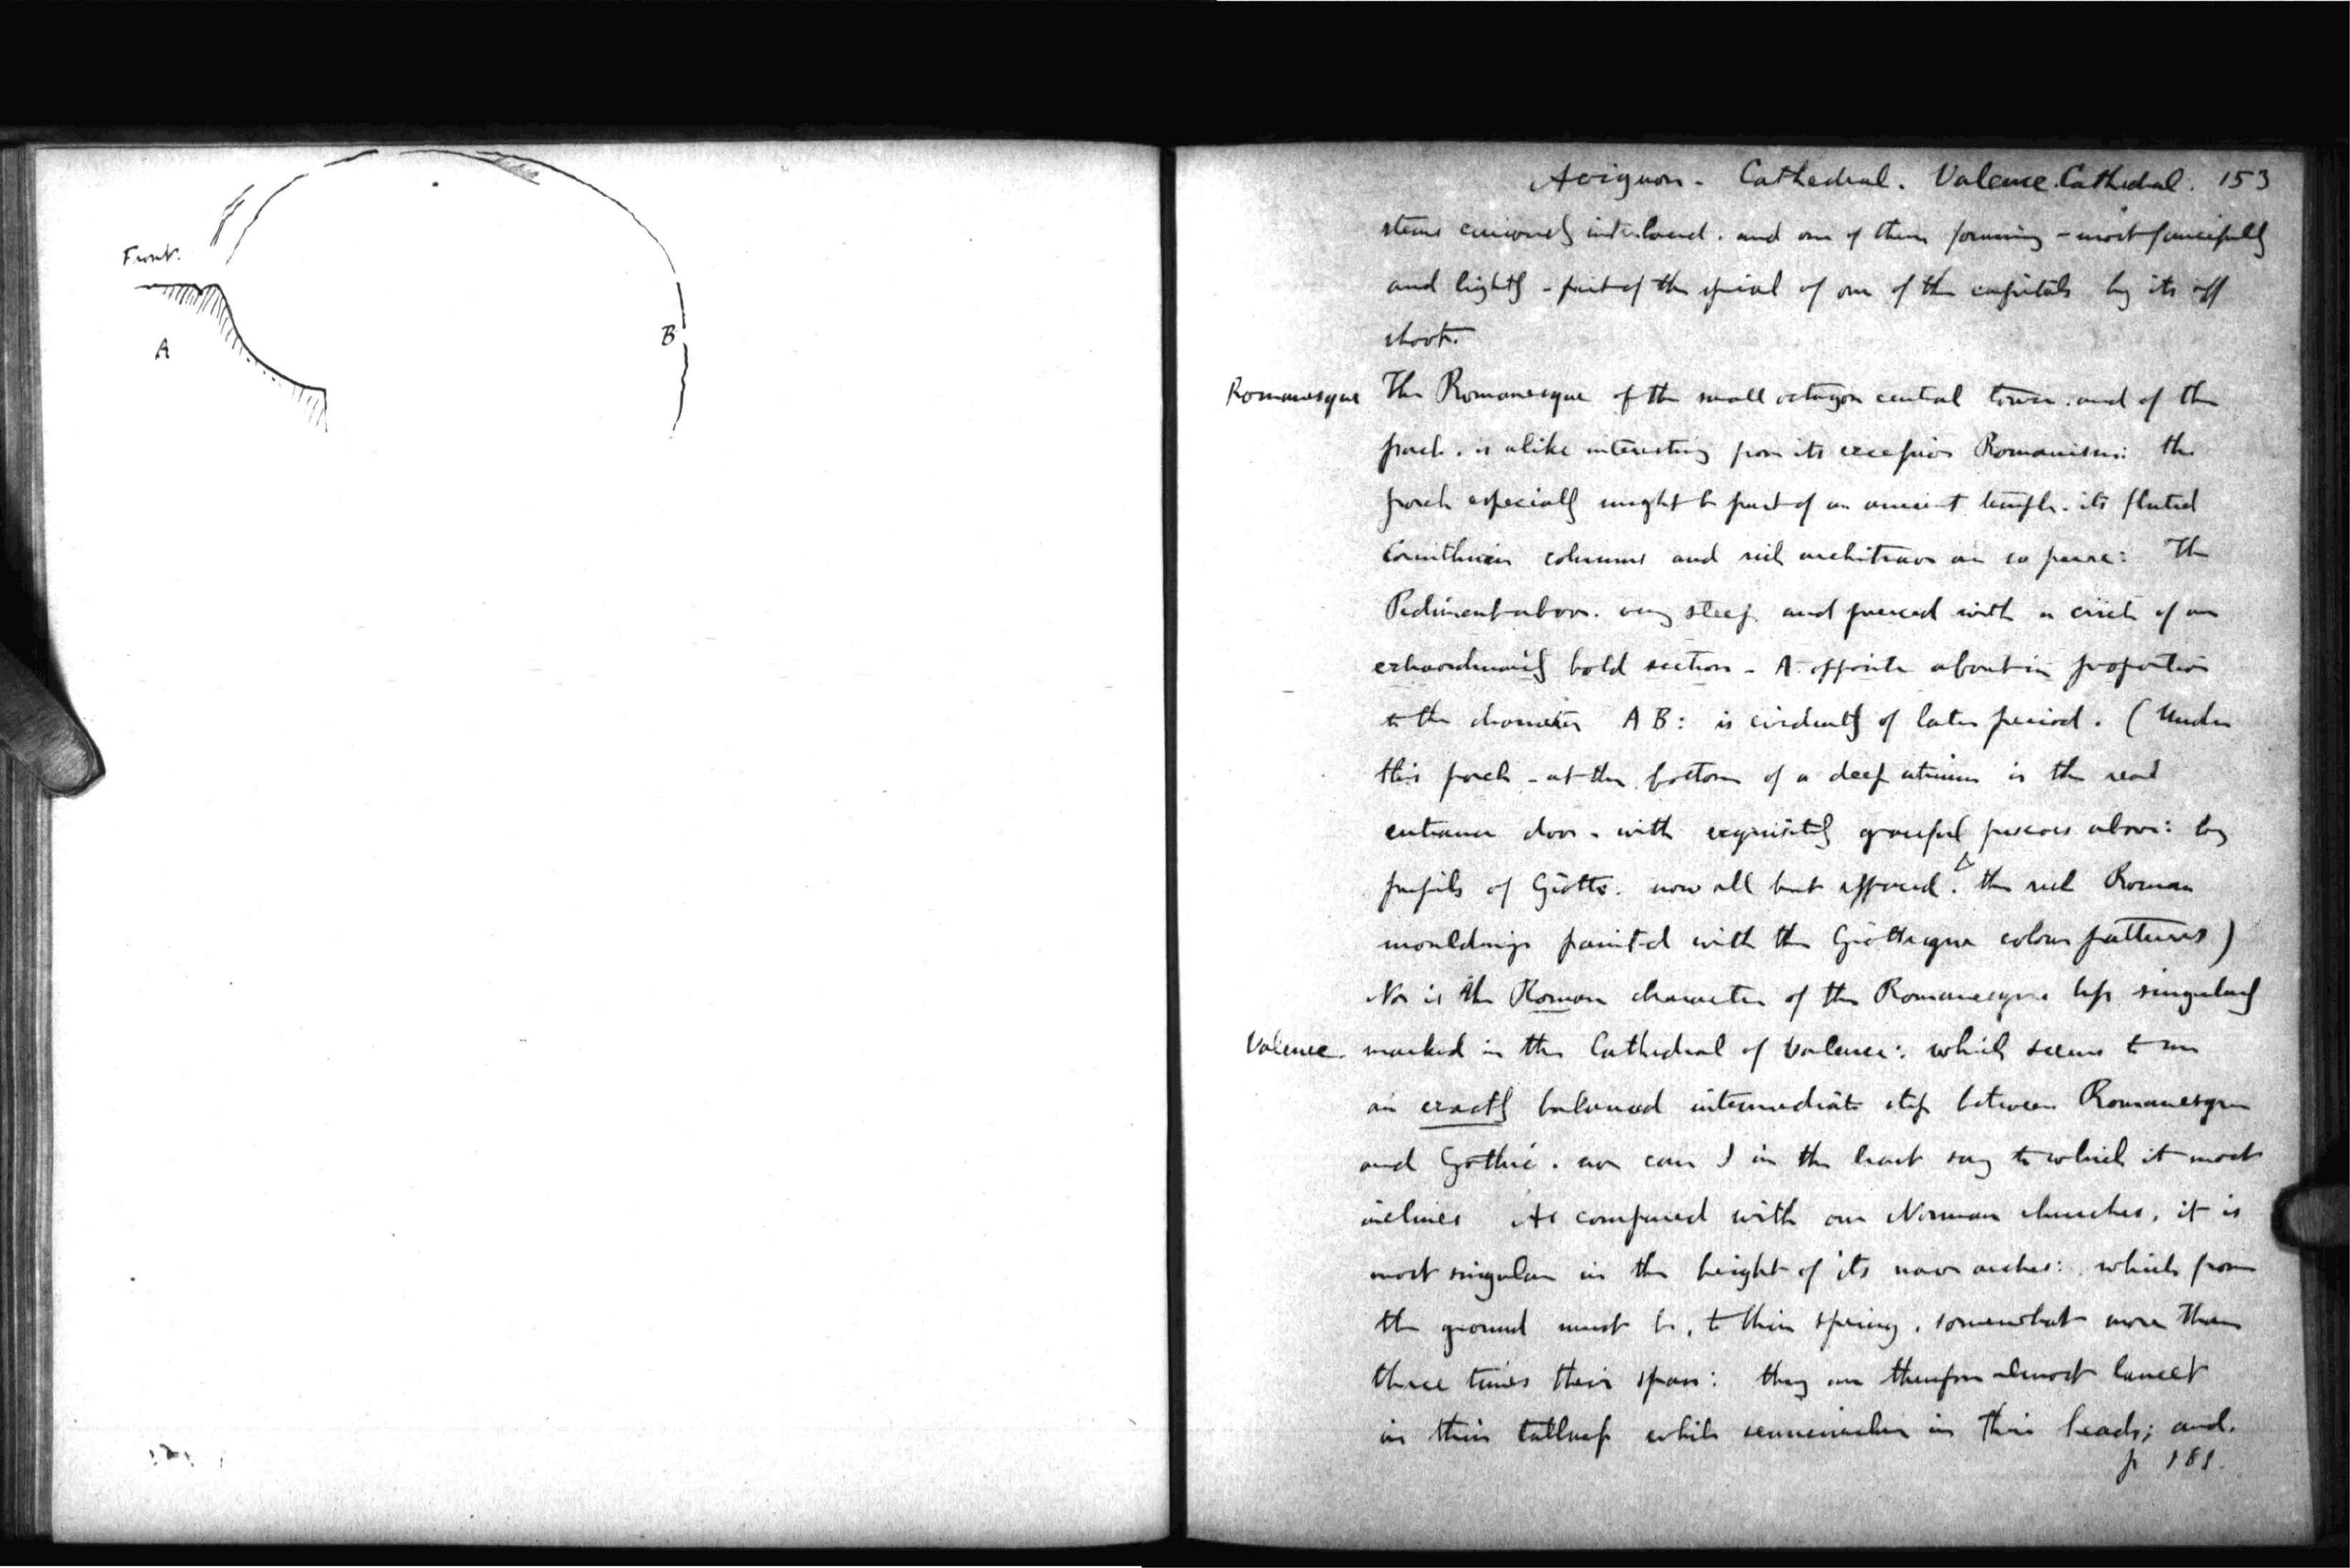 Front.
A
B
Avignon - Cathedral. Valence Cathedral. 153
stems curiously interlaced. and one of them forming - most fancifully
and lightly - part of the spiral of one of the capitals by its off
shoot.
Romanesque The Romanesque of the small octagon central tower. and of the
porch. is alike interesting from its excessive Romanism: the
porch especially might be part of an ancient temple. its fluted
Corinthian columns and rich architrave are so pure: The
Pediment above. very steep and pierced with a circle of an
extraordinarily bold section - A opposite about in proportion
to the diameter A B: is evidently of later period. (Under
this porch - at the bottom of a deep atrium is the real
entrance door - with exquisitely graceful frescoes above: by
pupils of Giotto. now all but effaced. the rich Roman
mouldings painted with the Giottesque colour patterns)
Nor is the Roman character of the Romanesque less singularly
Valence. marked in the Cathedral of Valence: which seems to me
an exactly balanced intermediate step between Romanesque
and Gothic. nor can I in the least say to which it most
inclines As compared with our Norman churches, it is
most singular in the height of its nave arches: which from
the ground must be, to their spring, somewhat more than
three times their span: they are therefore almost lancet
in their tallness while semicircular in their heads; and.
p 181.